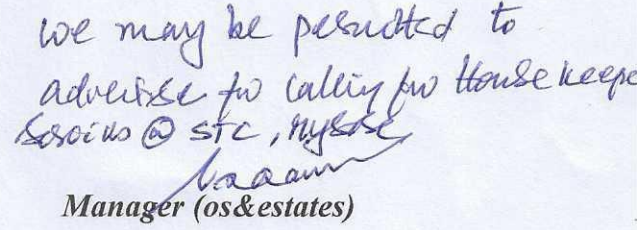 we may be permitted to
advertise for calling for House keepe
Services @ STC, Mysore
Manager (os&estates)